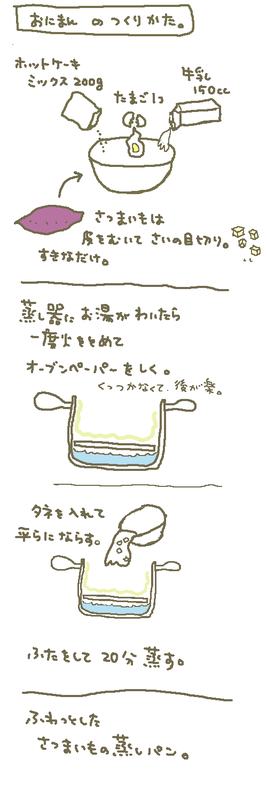 おにまん のつくりかた。
ホットケーキ
ミックス 200g
たまご1コ
牛乳
150cc
さつまいもは
皮をむいて さいの目切り。
すきなだけ。
蒸し器に お湯が わいたら
一度火をとめて
オーブンペーパーをしく。
くっつかなくて、後が楽。
タネを入れて
平らにならす。
ふたをして 20分 蒸す。
ふわっとした
さつまいもの蒸しパン。